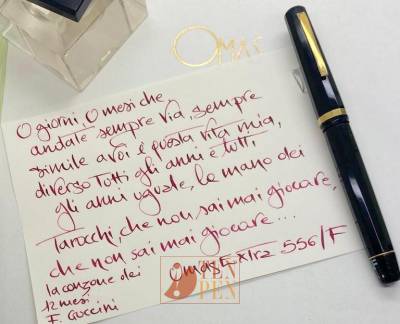 OMAS
O giorni O mesi che
andate sempre via, sempre
simile a voi è questa vita mia,
diverso tutti gli anni e tutti
gli anni uguale, la mano dei
Tarocchi, che non sai mai giocare,
che non sai mai giocare...
la canzone dei
12 mesi
F. Guccini
Omas Extra 556/F
THE
TEN
PEN